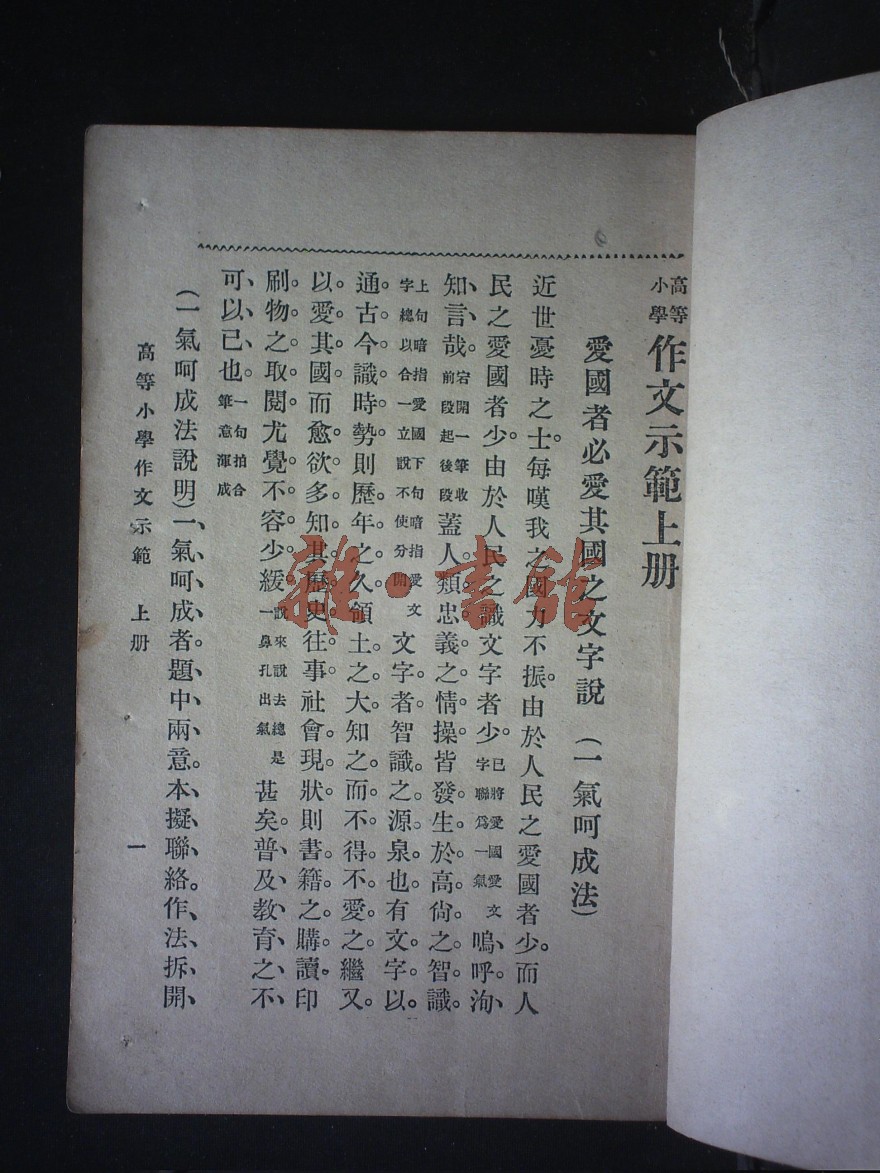 高等小學作文示範上册
愛國者必愛其國之文字說（一氣呵成法）
近世憂時之士。每嘆我之國力不振。由於人民之愛國者少。而人
民之愛國者少。由於人民之識文字者少。已將愛國愛文字聯爲一氣嗚、呼、洵、
知、言哉。宕開一筆收前段起後段蓋人類忠義之情操。皆發生於高尙之智識。
上句暗指愛國下句暗指愛文字總以合一立說不使分開文字者智識之源泉也。有文字以
通古今識時勢。則歷年之久。領土之大。知之而不得不愛之。繼又
以愛其國而愈欲多知其歷史往事社會現狀。則書籍之購讀。印
刷物之取閱。尤覺不容少緩。說來說去總是一鼻孔出氣甚矣。普、及、教、育、之、不、
可、以、已、也。一句拍合筆意渾成
（一氣呵成法說明）一、氣、呵、成、者。題、中、兩、意。本、擬、聯、絡。作、法、拆、開、
高等小學作文示範　上册　一
雜·書館